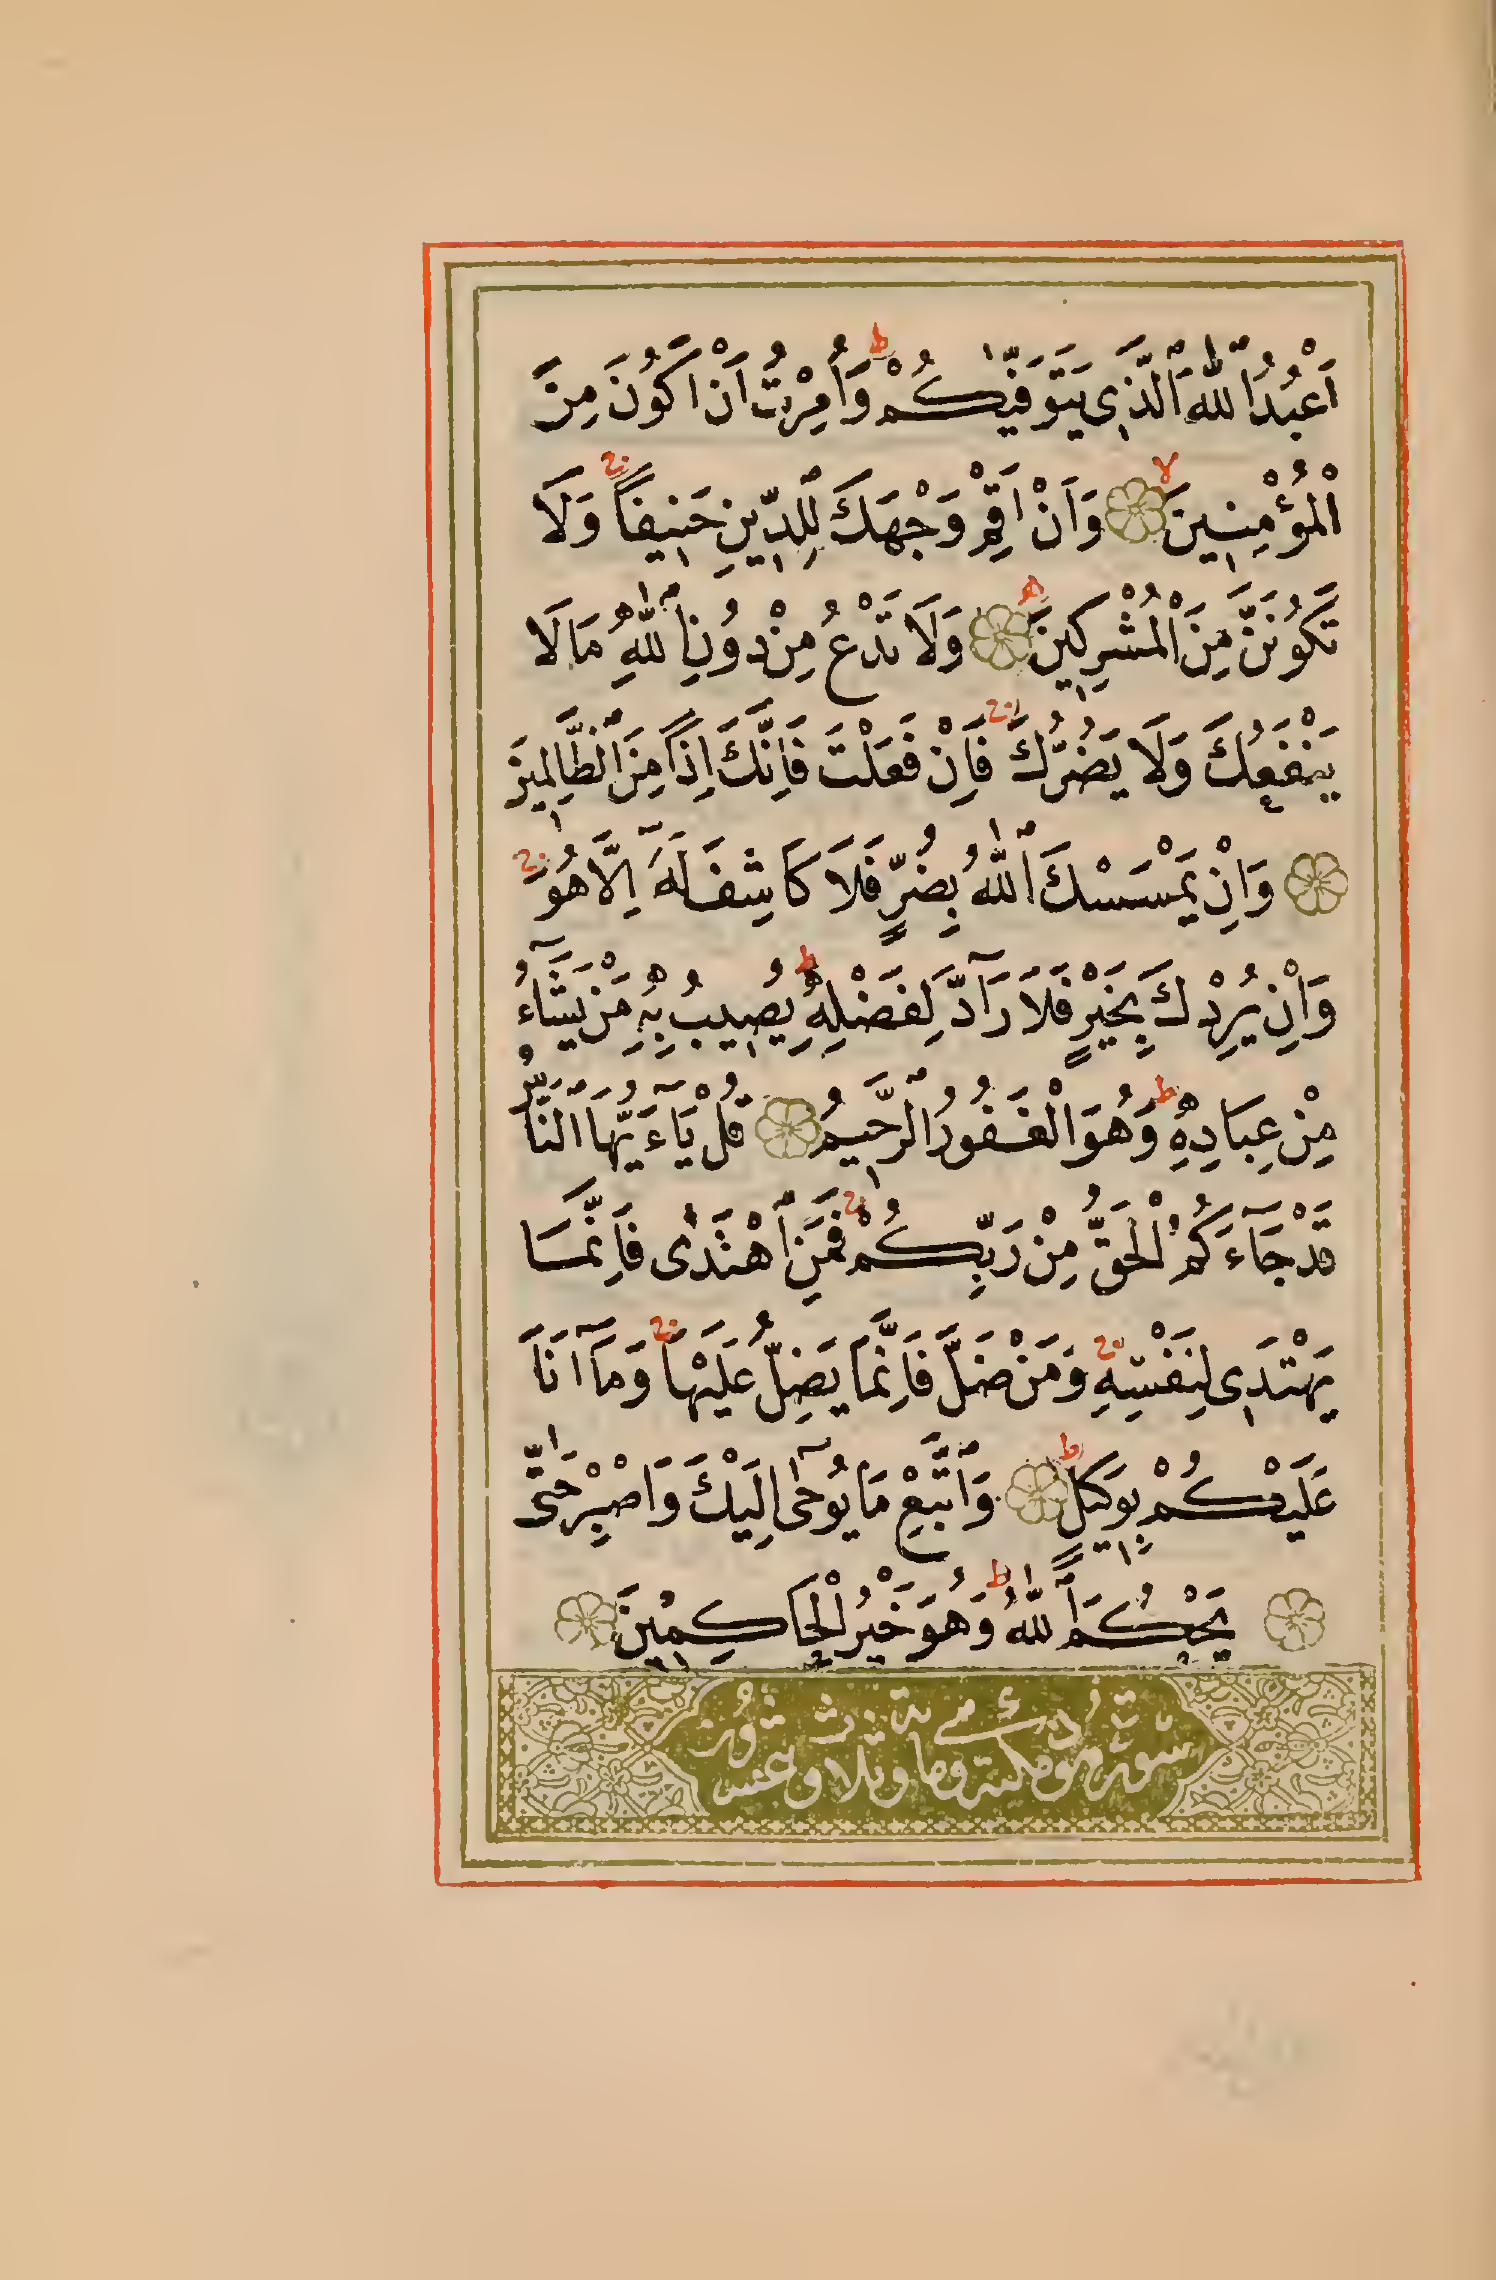 اَعْبُدُ ٱللّٰهَ ٱلَّذِي يَتَوَفّٰيكُمْ ۖ ط وَاُمِرْتُ اَنْ اَكُونَ مِنَ
ٱلْمُؤْمِنِينَ ۙ وَاَنْ اَقِمْ وَجْهَكَ لِلدِّينِ حَنِيفًا ج وَلَا
تَكُونَنَّ مِنَ ٱلْمُشْرِكِينَ ه وَلَا تَدْعُ مِنْ دُونِ ٱللّٰهِ مَا لَا
يَنْفَعُكَ وَلَا يَضُرُّكَ ج فَاِنْ فَعَلْتَ فَاِنَّكَ اِذًا مِنَ ٱلظَّالِمِينَ
وَاِنْ يَمْسَسْكَ ٱللّٰهُ بِضُرٍّ فَلَا كَاشِفَ لَهُٓ اِلَّا هُوَ ج
وَاِنْ يُرِدْكَ بِخَيْرٍ فَلَا رَآدَّ لِفَضْلِهِ ط يُصِيبُ بِهِ مَنْ يَشَآءُ
مِنْ عِبَادِهِ ط وَهُوَ ٱلْغَفُورُ ٱلرَّحِيمُ قُلْ يَآءَيُّهَا ٱلنَّاسُ
قَدْ جَآءَكُمُ ٱلْحَقُّ مِنْ رَبِّكُمْ ج فَمَنِ ٱهْتَدٰى فَاِنَّمَا
يَهْتَدِي لِنَفْسِهِ ج وَمَنْ ضَلَّ فَاِنَّمَا يَضِلُّ عَلَيْهَا ج وَمَآ اَنَا
عَلَيْكُمْ بِوَكِيلٍ ط وَٱتَّبِعْ مَا يُوحٰٓى اِلَيْكَ وَٱصْبِرْ حَتّٰى
يَحْكُمَ ٱللّٰهُ ط وَهُوَ خَيْرُ ٱلْحَاكِمِينَ
سورة هود مكية وهي مائة وثلاث وعشرون